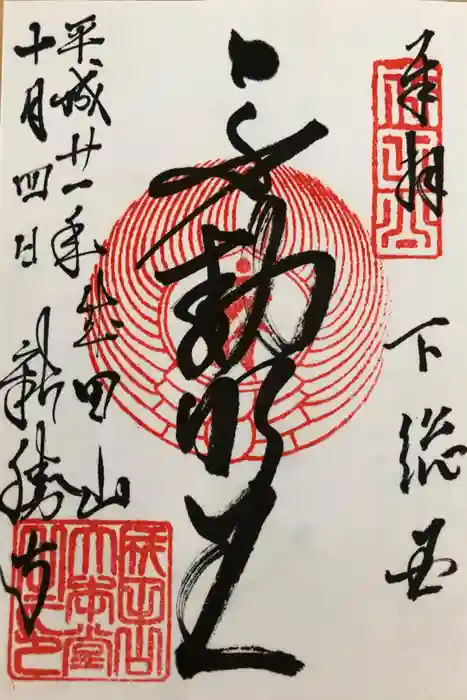 奉拝
下総国
不動明王
平成廿一年成田山
十月四日新勝寺
成田山
大本堂